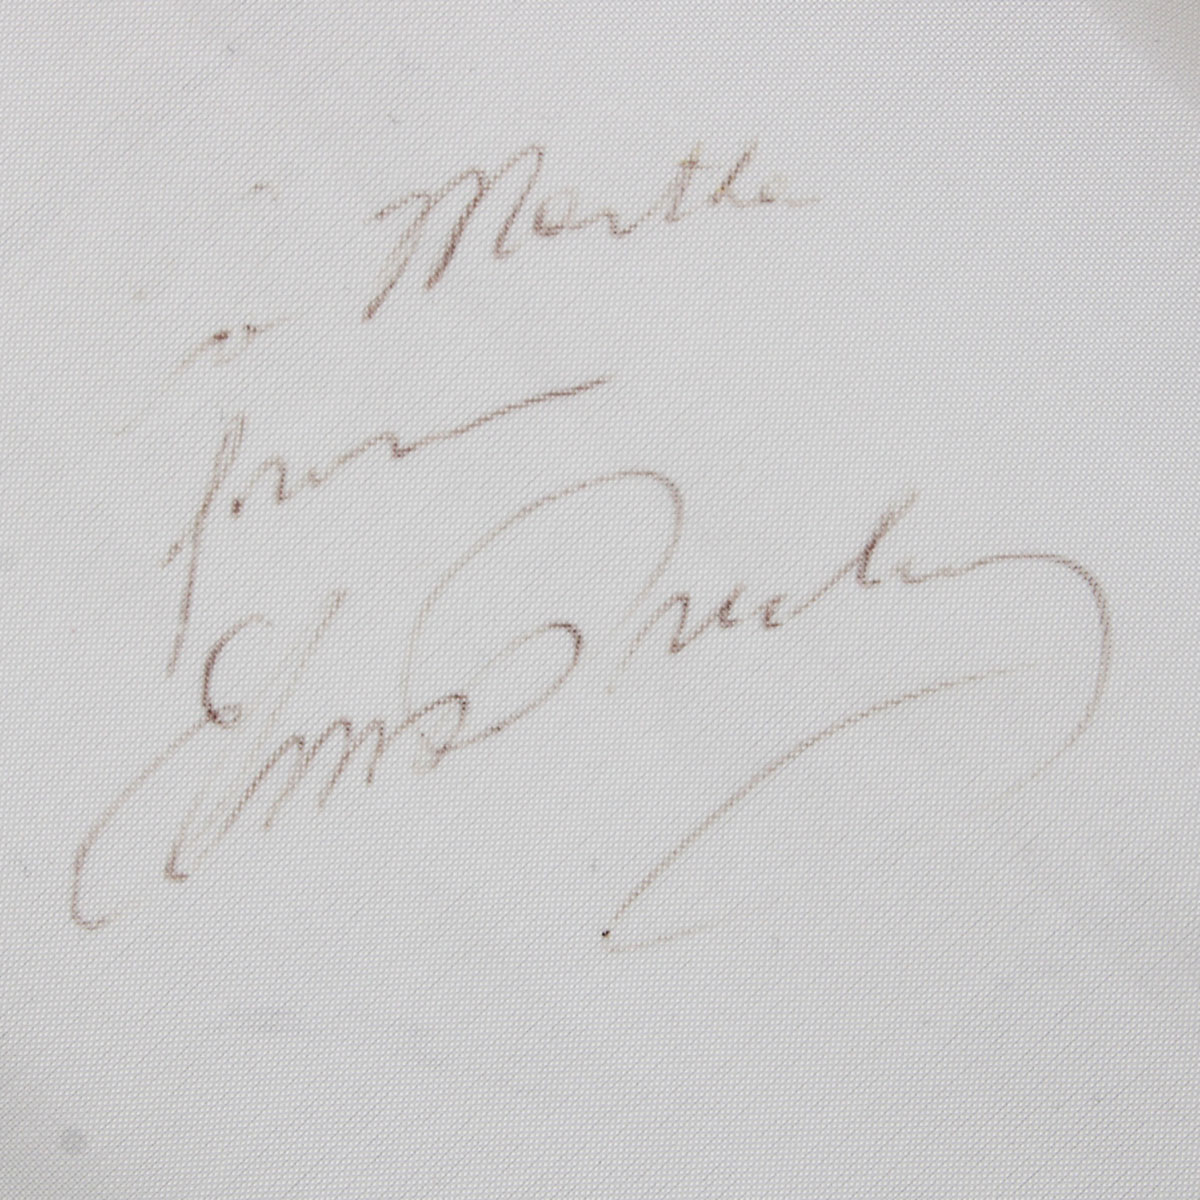 Martha
from
Elvis Presley